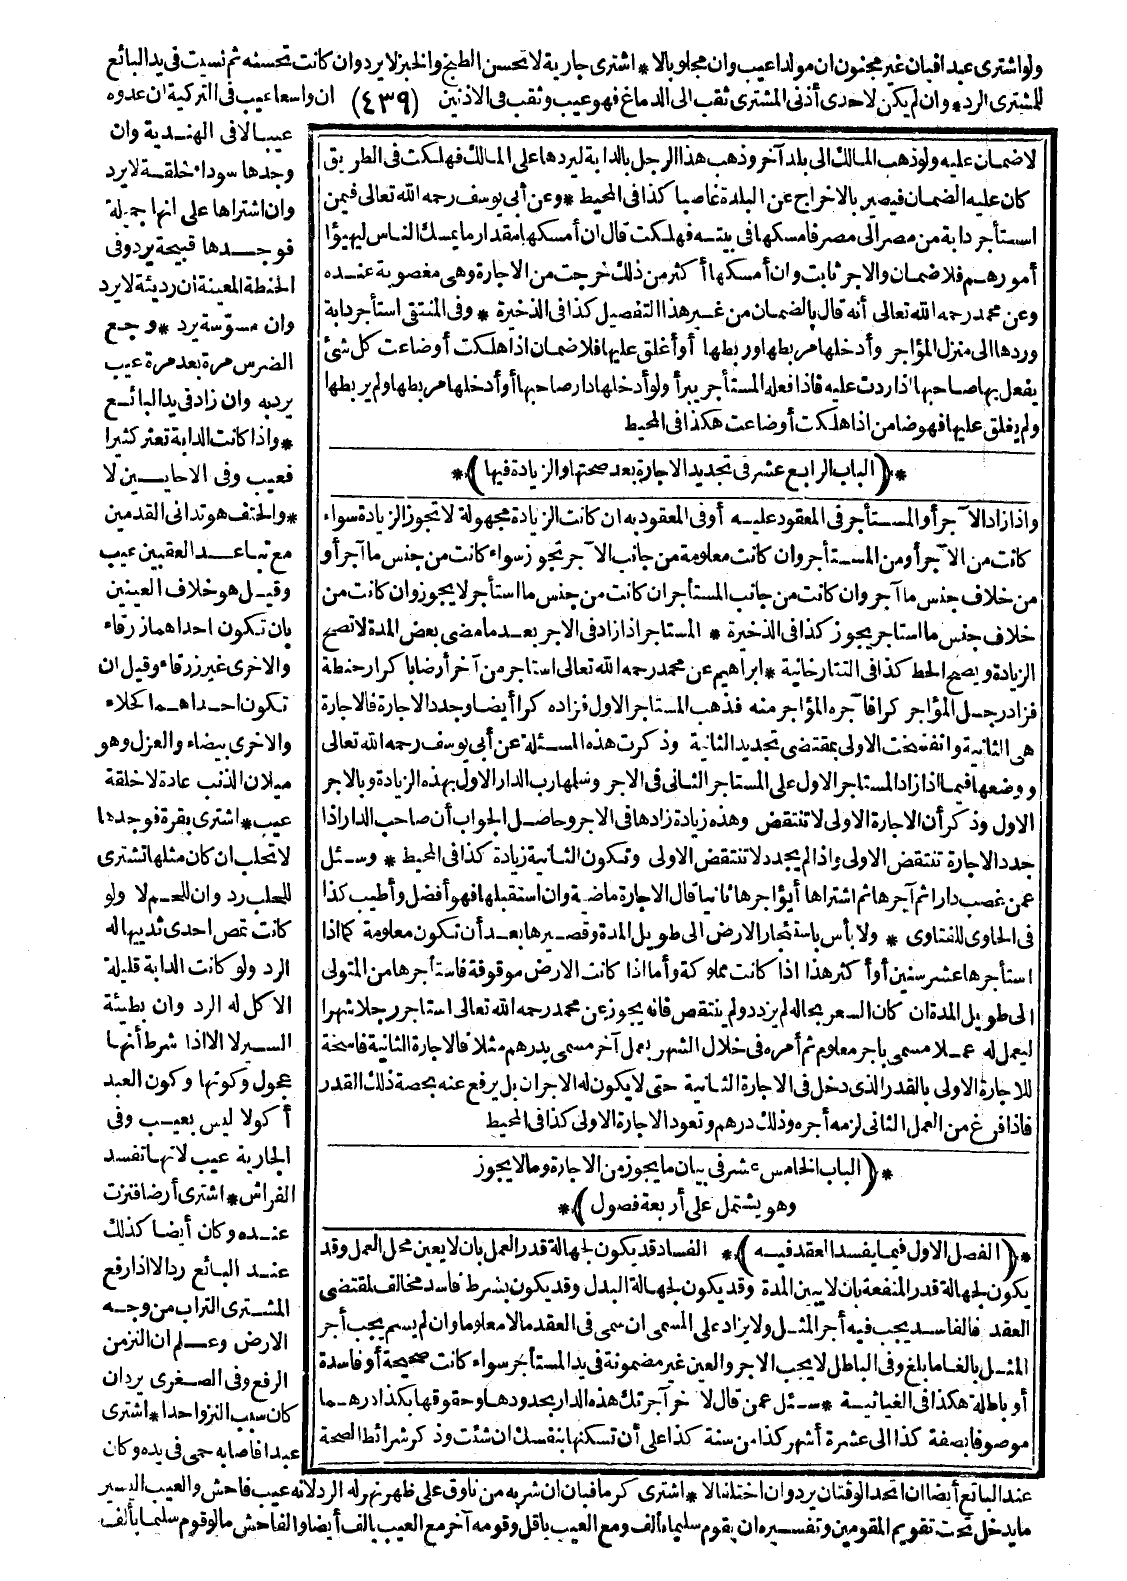 ولو اشترى عبدا فبان غير مختون ان مولدا عيب وان مجلوبا لا * اشترى جارية لا تحسن الطبخ والخبز لا يرد وان كانت تحسنه ثم نسيت فى يد البائع
للمشترى الرد * وان لم يكن لاحدى أذنى المشترى ثقب الى الدماغ فهو عيب وثقب فى الاذنين (٤٣٩) ان واسعا عيب فى التركية ان عدوه
عيبا لا فى الهندية وان
وجدها سوداء خلقة لا يرد
وان اشتراها على انها جميلة
فوجدها قبيحة يرد وفى
الحنطة المعينة ان رديئة لا يرد
وان مسوّسة يرد * وجع
الضرس مرة بعد مرة عيب
يرد به وان زاد فى يد البائع
* واذا كانت الدابة تعثر كثيرا
فعيب وفى الاحايين لا
* والحنف هو تدانى القدمين
مع تباعد العقبين عيب
وقيل هو خلاف العينين
بان تكون احداهما زرقاء
والاخرى غير زرقاء وقيل ان
تكون احداهما كحلاء
والاخرى بيضاء والعزل وهو
ميلان الذنب عادة لا خلقة
عيب * اشترى بقرة فوجدها
لا تحلب ان كان مثلها تشترى
للحلب رد وان للحم لا ولو
كانت تمص احدى ثدييها له
الرد ولو كانت الدابة قليلة
الاكل له الرد وان بطيئة
السير لا الا اذا شرط أنها
عجول وكونها وكون العبد
أكولا ليس بعيب وفى
الجارية عيب لانها تفسد
الفراش * اشترى أرضا فنزت
عنده وكان أيضا كذلك
عند البائع رد الا اذا رفع
المشترى التراب من وجه
الارض وعلم ان النز من
الرفع وفى الصغرى يرد ان
كان سبب النز واحدا * اشترى
عبدا فاصابه حمى فى يده وكان
لا ضمان عليه ولو ذهب المالك الى بلد آخر وذهب هذا الرجل بالدابة ليردها على المالك فهلكت فى الطريق
كان عليه الضمان فيصير بالاخراج عن البلدة غاصبا كذا فى المحيط * وعن أبى يوسف رحمه الله تعالى فيمن
استأجر دابة من مصر الى مصر فامسكها فى بيته فهلكت قال ان أمسكها مقدار ما يمسك الناس ليهيؤا
أمورهم فلا ضمان والاجر ثابت وان أمسكها أكثر من ذلك خرجت من الاجارة وهى مغصوبة عنده
وعن محمد رحمه الله تعالى أنه قال بالضمان من غير هذا التفصيل كذا فى الذخيرة * وفى المنتقى استأجر دابة
وردها الى منزل المؤاجر وأدخلها مربطها وربطها أو أغلق عليها فلا ضمان اذا هلكت أو ضاعت كل شئ
يفعل بها صاحبها اذا ردت عليه فاذا فعله المستأجر يبرأ ولو أدخلها دار صاحبها أو أدخلها مربطها ولم يربطها
ولم يغلق عليها فهو ضامن اذا هلكت أو ضاعت هكذا فى المحيط
* (الباب الرابع عشر فى تجديد الاجارة بعد صحتها والزيادة فيها) *
واذا زاد الآجر أو المستأجر فى المعقود عليه أو فى المعقود به ان كانت الزيادة مجهولة لا تجوز الزيادة سواء
كانت من الآجر أو من المستأجر وان كانت معلومة من جانب الآجر تجوز سواء كانت من جنس ما آجر أو
من خلاف جنس ما آجر وان كانت من جانب المستأجر ان كانت من جنس ما استأجر لا يجوز وان كانت من
خلاف جنس ما استاجر يجوز كذا فى الذخيرة * المستاجر اذا زاد فى الاجر بعد ما مضى بعض المدة لا تصح
الزيادة ويصح الحط كذا فى التتارخانية * ابراهيم عن محمد رحمه الله تعالى استاجر من آخر أرضا بكر حنطة
فزاد رجل المؤاجر كرا فآجره المؤاجر منه فذهب المستاجر الاول فزاده كرا أيضا وجدد الاجارة فالاجارة
هى الثانية وانفسخت الاولى بمقتضى تجديد الثانية وذكرت هذه المسئلة عن أبى يوسف رحمه الله تعالى
ووضعها فيما اذا زاد المستاجر الاول على المستاجر الثانى فى الاجر وسلمها رب الدار الاول بهذه الزيادة وبالاجر
الاول وذكر أن الاجارة الاولى لا تنتقض وهذه زيادة زادها فى الاجر وحاصل الجواب أن صاحب الدار اذا
جدد الاجارة تنتقض الاولى واذا لم يجدد لا تنتقض الاولى وتكون الثانية زيادة كذا فى المحيط * وسئل
عمن غصب دارا ثم آجرها ثم اشتراها أيؤاجرها ثانيا قال الاجارة ماضية وان استقبلها فهو أفضل وأطيب كذا
فى الحاوى للفتاوى * ولا بأس باستئجار الارض الى طويل المدة وقصيرها بعد أن تكون معلومة كما اذا
استأجرها عشر سنين أو أكثر هذا اذا كانت مملوكة وأما اذا كانت الارض موقوفة فاستأجرها من المتولى
الى طويل المدة ان كان السعر بحاله لم يزدد ولم ينتقص فانه يجوز عن محمد رحمه الله تعالى استاجر رجلا شهرا
ليعمل له عملا مسمى باجر معلوم ثم أمره فى خلال الشهر بعمل آخر مسمى بدرهم مثلا فالاجارة الثانية فاسخة
للاجارة الاولى بالقدر الذى دخل فى الاجارة الثانية حتى لا يكون له الاجران بل يرفع عنه بحصة ذلك القدر
فاذا فرغ من العمل الثانى لزمه أجره وذلك درهم وتعود الاجارة الاولى كذا فى المحيط
* (الباب الخامس عشر فى بيان ما يجوز من الاجارة وما لا يجوز
وهو يشتمل على أربعة فصول) *
* (الفصل الاول فيما يفسد العقد فيه) * الفساد قد يكون لجهالة قدر العمل بان لا يعين محل العمل وقد
يكون لجهالة قدر المنفعة بان لا يبين المدة وقد يكون لجهالة البدل وقد يكون بشرط فاسد مخالف لمقتضى
العقد فالفاسد يجب فيه أجر المثل ولا يزاد على المسمى ان سمى فى العقد مالا معلوما وان لم يسم يجب أجر
المثل بالغا ما بلغ وفى الباطل لا يجب الاجر والعين غير مضمونة فى يد المستأجر سواء كانت صحيحة أو فاسدة
أو باطلة هكذا فى الغياثية * سئل عمن قال لآخر آجرتك هذه الدار بحدودها وحقوقها بكذا درهما
موصوفا بصفة كذا الى عشرة أشهر كذا من سنة كذا على أن تسكنها بنفسك ان شئت وذكر شرائط الصحة
عند البائع أيضا ان اتحد الوقتان يرد وان اختلفا لا * اشترى كرما فبان ان شربه من ناوق على ظهر نهر له الرد لانه عيب فاحش والعيب اليسير
ما يدخل تحت تقويم المقومين وتفسيره ان يقوم سليما بألف ومع العيب باقل وقومه آخر مع العيب بالف أيضا والفاحش ما لو قوم سليما بألف